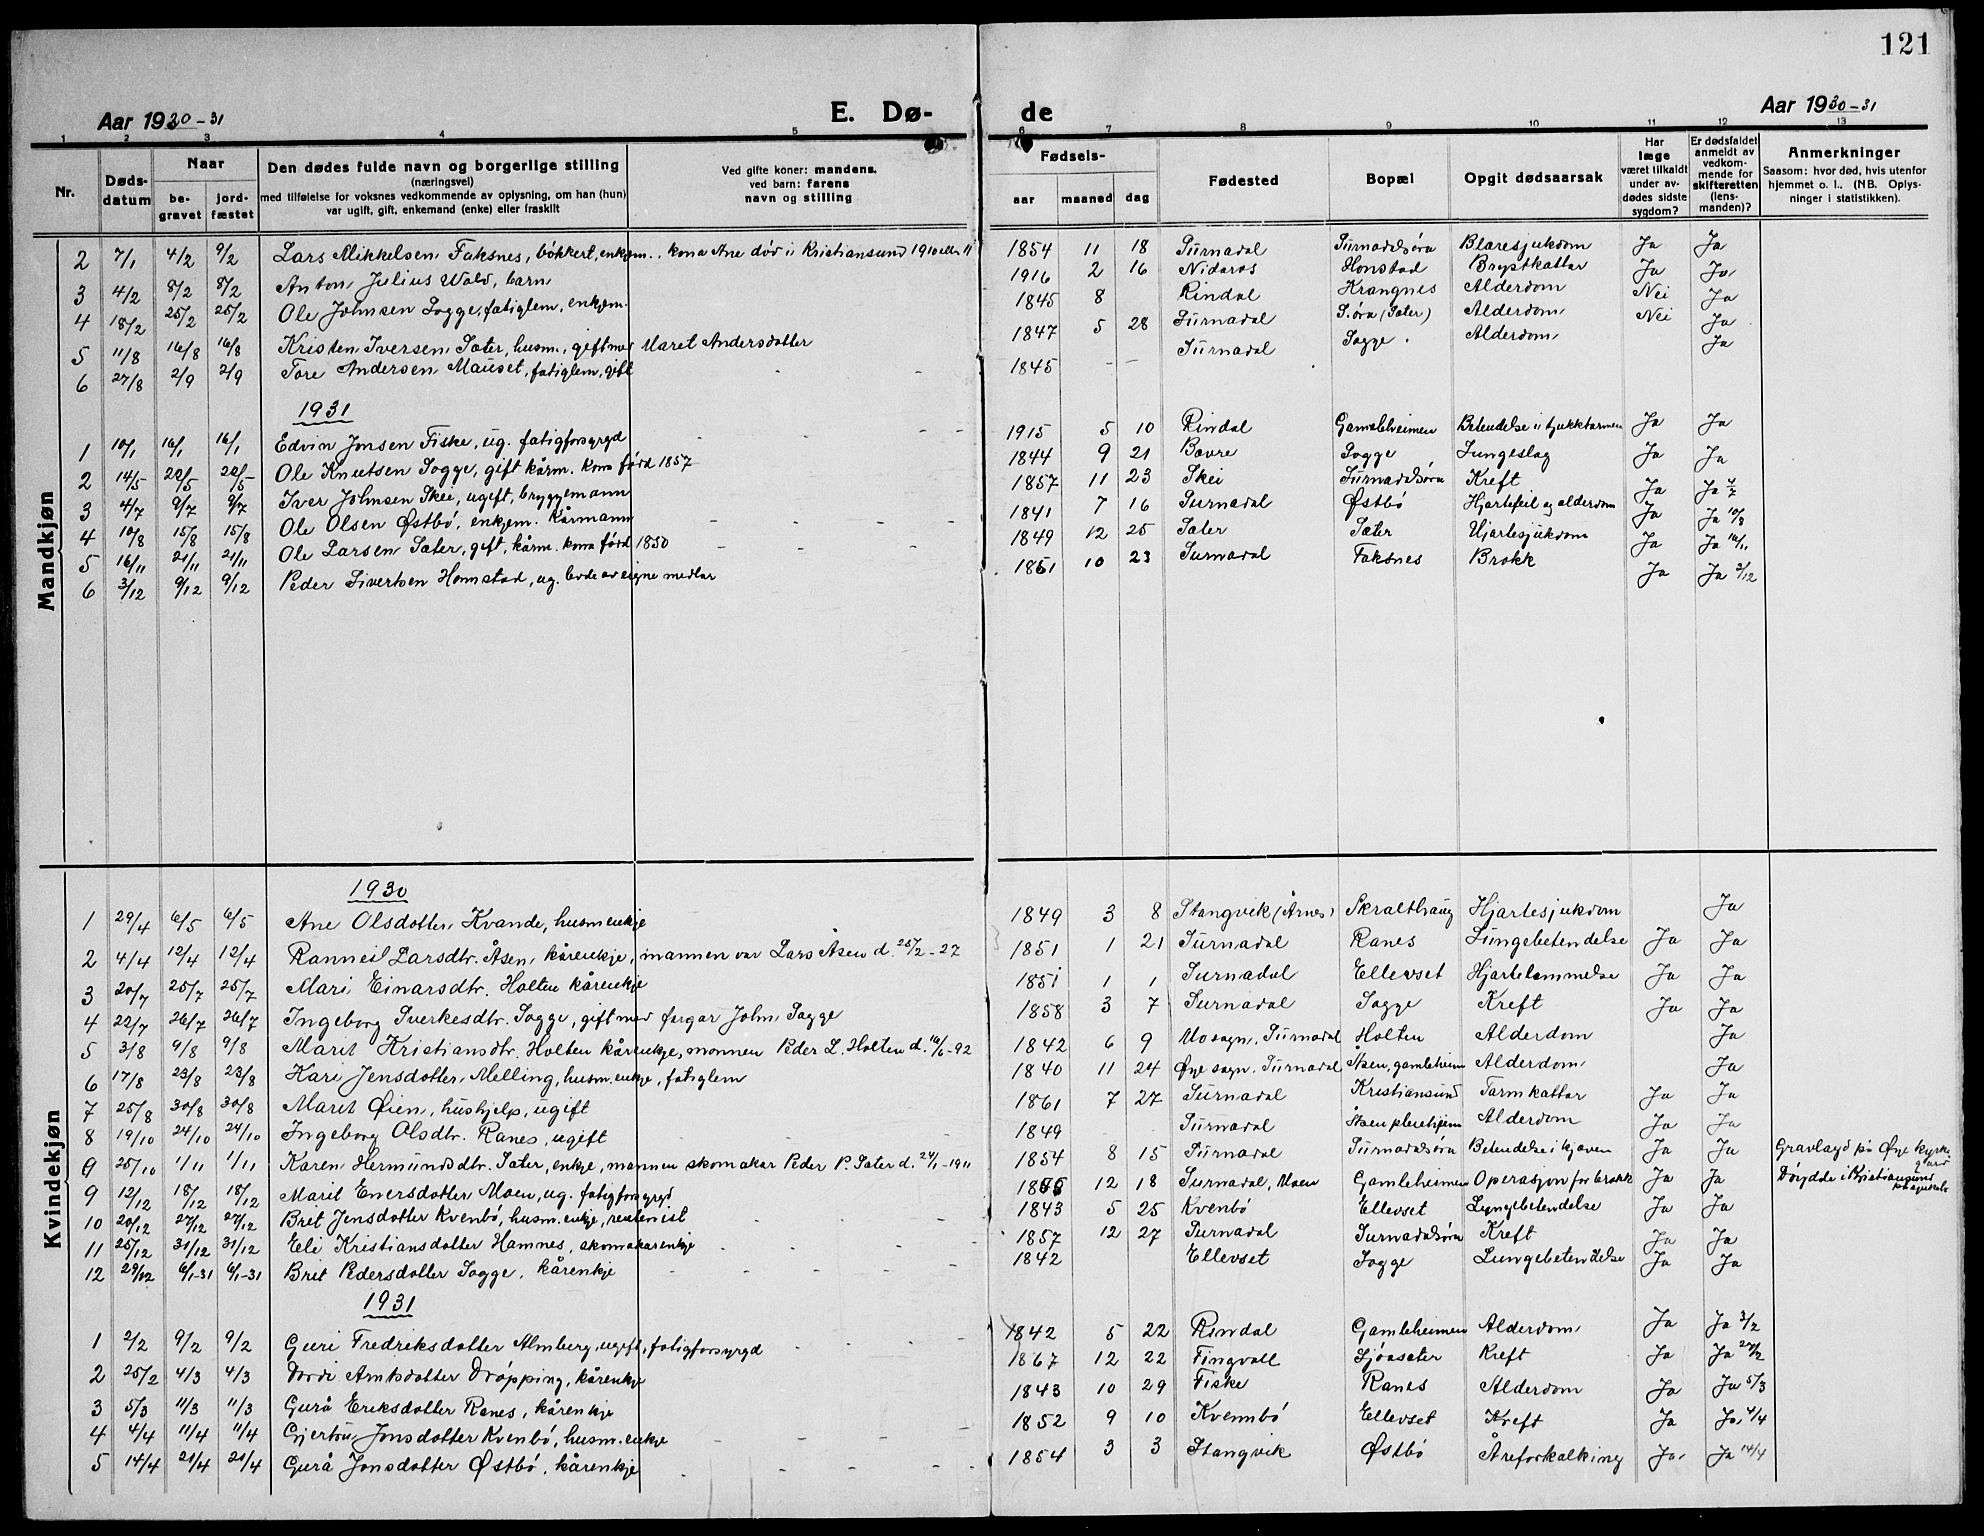 121
Aar 1930-31 E. Dø- de Aar 1930-31
1 2 3 4 5 6 7 8 9 10 11 12 13
Nr. Døds-datum Naar be-gravet jord-fæstet Den dødes fulde navn og borgerlige stilling (næringsvei) med tilføielse for voksnes vedkommende av oplysning, om han (hun) var ugift, gift, enkemand (enke) eller fraskilt Ved gifte koner: mandens. ved barn: farens navn og stilling Fødsels- aar maaned dag Fødested Bopæl Opgit dødsaarsak Har læge været tilkaldt under av-dødes sidste sygdom? Er dødsfaldet anmeldt av vedkom-mende for skifteretten (lens-manden)? Anmerkninger Saasom: hvor død, hvis utenfor hjemmet o. l., (NB. Oplys-ninger i statistikken).
Mandkjøn
2 7/1 4/2 9/2 Lars Mikkelsen Faksnes, bökkert, enkjem., kona Ane död i Kristiansund 1910 elle 11 1854 11 18 Surnadal Surnadalsöra Blæresjukdom Ja Ja
3 4/2 8/2 8/2 Anton Julius Wold, barn 1916 2 16 Nidaros Honstad Brystkattar Ja Ja
4 18/2 25/2 25/2 Ole Johnsen Sogge, fatiglem, enkjem. 1845 8 Rindal Krangnes Alderdom Nei Ja
5 11/8 16/8 16/8 Kristen Iversen Sæter, husm., gift med Maret Andersdotter 1847 5 28 Surnadal S.öra (Sæter) Alderdom Nei Ja
6 27/8 2/9 2/9 Tore Andersen Mauset, fatiglem, gift 1845 - - Surnadal Sogge Alderdom Ja
1931
1 10/1 16/1 16/1 Edvin Jonsen Fiske, ug. fatigforsyrgd 1915 5 10 Rindal Gamleheimen Betendelse i tjukktarmen Ja Ja
2 14/5 22/5 22/5 Ole Knutsen Sogge, gift kårm. kona född 1857 1844 9 21 Bævre Sogge Lungeslag Ja Ja
3 4/7 9/7 9/7 Iver Johnsen Skei, ugift, bryggjemann 1857 11 23 Skei Surnadalsöra Kreft Ja Ja 4/7
4 10/8 15/8 15/8 Ole Olsen Østbö, enkjem. Kårmann 1841 7 16 Surnadal Østbö Hjartefeil og alderdom Ja Ja 10/8
5 16/11 21/11 21/11 Ole Larsen Sæter, gift, kårm. kona född 1850 1849 12 25 Sæter Sæter Hjartesjukdom Ja Ja 16/11
6 3/12 9/12 9/12 Peder Sivertsen Honstad, ug. levde av eigne medlar 1851 10 23 Surnadal Faksnes Brokk Ja Ja 3/12
Kvindekjøn
1930
1 29/4 6/5 6/5 Ane Olsdotter Kvande, husm.enkje 1849 3 8 Stangvik (Årnes) Skralthaug Hjartesjukdom Ja
2 4/4 12/4 12/4 Ranneil Larsdtr. Åsen, kårenkje, mannen var Lars Åsen d. 25/2-27 1851 1 21 Surnadal Ranes Lungebetendelse Ja Ja
3 20/7 25/7 25/7 Mari Einarsdtr. Holten kårenkje 1851 1 1 Surnadal Ellevset Hjartelammelse Ja Ja
4 22/7 26/7 26/7 Ingeborg Sverkesdtr. Sogge, gift med fargar John Sogge 1858 3 7 Surnadal Sogge Kreft Ja Ja
5 3/8 9/8 9/8 Marit Kristiansdtr. Holten kårenkje, mannen Peder L. Holten d. 16/6-92 1842 6 9 Mo sogn, Surnadal Holten Alderdom Ja
6 17/8 23/8 23/8 Kari Jensdotter Melling, husm.enkje, fatiglem 1840 11 24 Øye sogn, Surnadal Åsen, gamleheim Alderdom Ja
7 25/8 30/8 30/8 Marit Øien, hushjelp, ugift 1861 7 27 Surnadal Kristiansund Tarmkattar Ja Ja
8 19/10 24/10 24/10 Ingeborg Olsdtr. Ranes, ugift 1849 Surnadal Åsen pleiehjem Alderdom Ja Ja
9 25/10 1/11 1/11 Karen Hermundsdtr. Sæter, enkje, mannen skomakar Peder P. Sæter d. 24/1-1911 1854 8 15 Surnadal Surnadalsöra Betendelse i Ja Ja Gravlagd på Øye kyrkjegard
9 12/12 18/12 18/12 Marit Enersdotter Moen, ug. fatigforsyrgd 12 18 Surnadal, Moen Gamleheimen Operasjon for brokk Ja Ja Döydde i Kristiansund
10 20/12 27/12 27/12 Brit Jensdotter Kvenbö, husm. enkje, 1843 5 25 Kvenbö Ellevset Lungebetendelse Ja Ja
11 25/12 31/12 31/12 Eli Kristiansdotter Hamnes, skomakarenkje 1857 12 27 Surnadal Surnadalsöra Kreft Ja Ja
12 29/12 6/1-31 6/1-31 Brit Pedersdotter Sogge, kårenkje 1842 Ellevset Sogge Lungebetendelse Ja Ja
1931
1 2/2 9/2 9/2 Guri Fredriksdotter Almberg, ugift, fatigforsyrgd 1842 5 22 Rindal Gamleheimen Alderdom Ja Ja 3/2
2 25/2 4/3 4/3 Dordi Arntsdotter Dröpping, kårenkje 1867 12 22 Tingvoll Sjöasæter Kreft Ja Ja 27/2
3 5/3 11/3 11/3 Gurå Eriksdotter Ranes, kårenkje 1843 10 29 Fiske Ranes Alderdom Ja Ja 5/3
4 4/4 11/4 11/4 Gjertru Jonsdotter Kvenbö, husm. enkje 1852 9 10 Kvennbö Ellevset Kreft Ja Ja 4/4
5 14/4 21/4 21/4 Gurå Jonsdotter Østbö, kårenkje 1854 3 3 Stangvik Østbö Åreforkalking Ja Ja 14/4